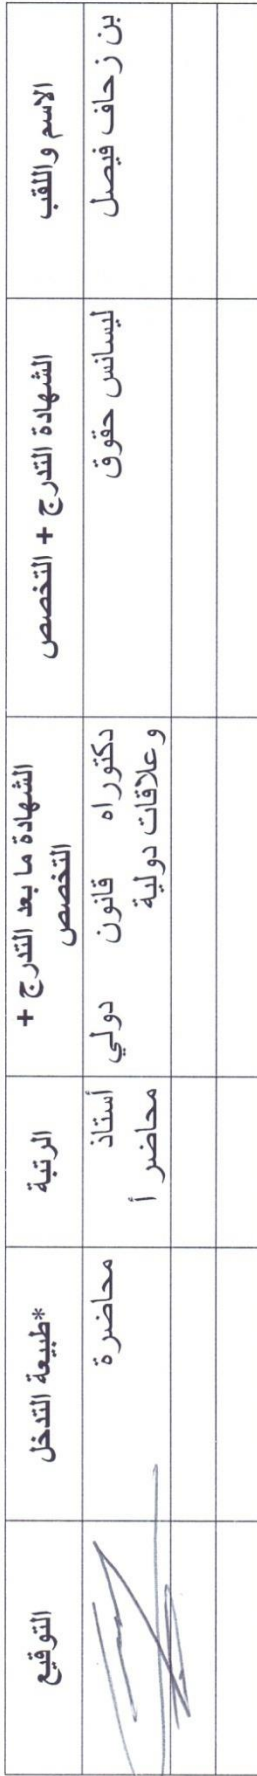 الاسم واللقب
الشهادة التدرج + التخصص
الشهادة ما بعد التدرج +
التخصص
الرتبة
*طبيعة التدخل
التوقيع
بن زحاف فيصل
ليسانس حقوق
دكتوراه قانون دولي
وعلاقات دولية
أستاذ
محاضر أ
محاضرة